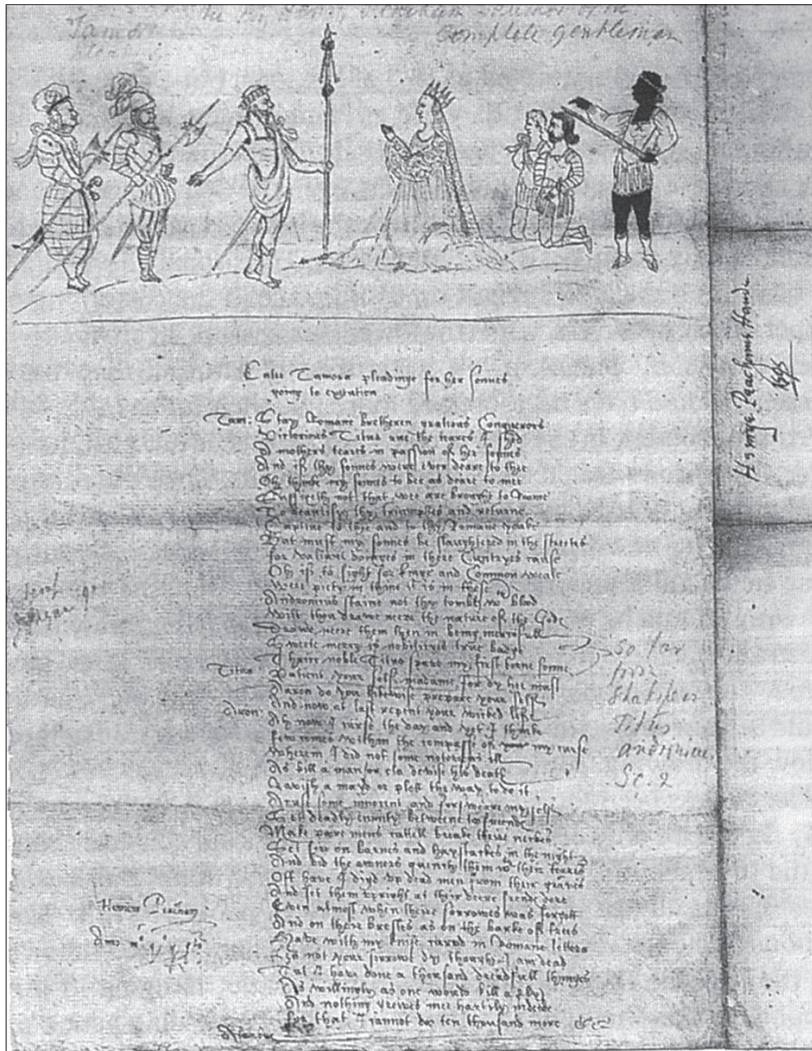 complete gentleman
Tamor
Enter Tamora pleadinge for her sonnes
going to execution
Tam: Stay Romane bretheren gratious Conquerors
Victorious Titus rue the teares I shed
A mothers teares in passion of her sonnes
And if thy sonnes were ever deare to thee
Oh thinke my sonnes to bee as deare to mee
Sufficeth not that wee are brought to Roome
To beautify thy triumphes and returne
Captiue to thee and to thy Romane yoake
But must my sonnes be slaughtered in the streetes
for valiant doinges in there Cuntryes cause
Oh if to fight for kinge and Common weale
Were piety in thine it is in these
Andronicus staine not thy tombe wth blood
Wilt thou drawe neere the nature of the Gods
Drawe neere them then in being mercifull
Sweete mercy is nobilityes true badge
Thrice noble Titus spare my first borne sonne
Titus: Patient your self madame for dy hee must
Aaron do you likewise prepare your self
And now at last repent your wicked life
Aron: Ah now I curse the day and yet I thinke
few comes within the compasse of my curse
Wherein I did not some notorious ill
As kill a man or els devise his death
Ravish a mayd or plott the way to do it
Acuse some innocent and forsweare myself
Set deadly enmity betweene to freindes
Make poore mens cattell breake theire neckes
Set fire on barnes and haystackes in the night
And bid the owners quench them wth their teares
Oft have I digd vp dead men from their graves
And set them vpright at their deere frends dore
Even almost when theire sorrowes was forgott
And on their brestes as on the barke of trees
Have with my knife carved in Romane letters
Lett not your sorrowe dy though I am dead
Tut I have done a thousand dreadfull thinges
As willingly as one would kill a fly
And nothing greives mee hartily indeede
for that I cannot doo ten thousand more &c
Alarbus
so far
from
Shakspear
Titus
Andronicus
Sc. 2
Henricus Peacham
Anno
Henrye Peachams Hande
1595